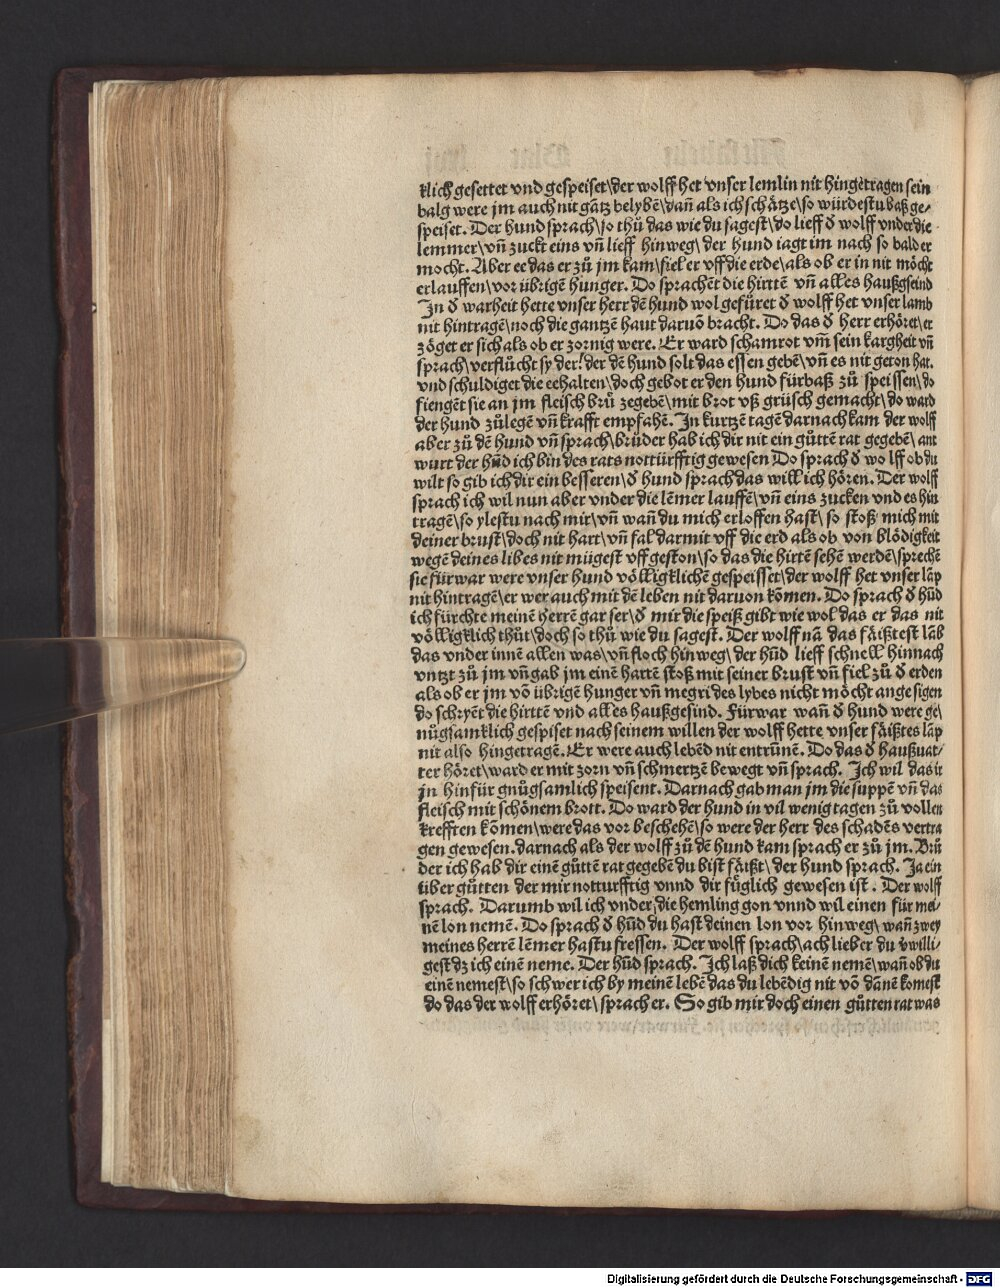 klich gesettet vnd gespeiset\der wolff het vnser lemlin nit hingetragen sein
balg were jm auch nit gātz belybē\dañ als ich schåtze\so würdestu baß ge⸗
speiset. Der hund sprach\so thů das wie du sagest\do lieff ð wolff vnder die
lemmer\vñ zuckt eins vñ lieff hinweg\ der hund iagt im nach so bald er
mocht. Aber ee das er zů jm kam\fiel er vff die erde\als ob er in nit möcht
erlauffen\vor übrigē hunger. Do sprachēt die hirttē vñ alles haußgseind
In ð warheit hette vnser herr dē hund wol gefüret ð wolff het vnser lamb
nit hintragē\noch die gantzē haut daruō bracht. Do das ð herr erhöret\er
zöget er sich als ob er zornig were. Er ward schamrot vm̄ sein kargheit vñ
sprach\verflůcht sy der! der dē hund solt das essen gebē\vñ es nit geton hat.
vnd schuldiget die eehalten\doch gebot er den hund fürbaß zů speissen\do
fiengēt sie an jm fleisch brů zegebē\mit brot vß grüsch gemacht\do ward
der hund zůlegē vñ krafft empfahē. In kurtzē tagē darnach kam der wolff
aber zů dē hund vñ sprach\brůder hab ich dir nit ein gůttē rat gegebē\ ant
wurt der hūd ich bin des rats nottürfftig gewesen Do sprach ð wo lff ob du
wilt so gib ich dir ein besseren\ð hund sprach das will ich hören. Der wolff
sprach ich wil nun aber vnder die lēmer lauffē\vñ eins zucken vnd es hin
tragē\so ylestu nach mir\vñ wañ du mich erloffen hast\ so stoß mich mit
deiner brust\doch nit hart\vñ fal darmit vff die erd als ob von blödigkeit
wegē deines libes nit mügest vff geston\so das die hirtē sehē werdē\sprechē
sie für war were vnser hund völligklichē gespeisset\der wolff het vnser lāp
nit hintragē\er wer auch mit dē leben nit daruon kōmen. Do sprach ð hūd
ich fürchte meinē herrē gar ser\ð mir die speiß gibt wie wol das er das nit
völligklich thůt\doch so thů wie du sagest. Der wolff nā das fåißtest lāb
das vnder innē allen was\vñ floch hinweg\ der hūd lieff schnell hinnach
vntzt zů jm vñ gab jm einē hartē stoß mit seiner brust vñ fiel zů ð erden
als ob er jm vō übrigē hunger vñ megri des lybes nicht möcht ange sigen
do schryēt die hirttē vnd alles haußgesind. Fürwar wañ ð hund were ge\
nůgsamklich gespiset nach seinem willen der wolff hette vnser fåißtes lāp
nit also hingetragē. Er were auch lebēd nit entrūnē. Do das ð haußuat⸗
ter höret\ward er mit zorn vñ schmertzē bewegt vñ sprach. Ich wil das ir
jn hinfür gnůgsamlich speisent. Darnach gab man jm die suppē vñ das
fleisch mit schönem brott. Do ward der hund in vil wenig tagen zů vollen
krefften kōmen\were das vor beschehē\so were der herr des schadēs vertra
gen gewesen. darnach als der wolff zů dē hund kam sprach er zů jm. Brů
der ich hab dir einē gůttē rat gegebē du bist fåißt\ der hund sprach. Ja ein
über gůtten der mir notturfftig vnnd dir fůglich gewesen ist. Der wolff
sprach. Darumb wil ich vnder die hemling gon vnnd wil einen für mei⸗
nē lon nemē. Do sprach ð hūd du hast deinen lon vor hinweg\ wañ zwey
meines herrē lēmer hastu fressen. Der wolff sprach\ach lieber du vwilli⸗
gest dz ich einē neme. Der hūd sprach. Ich laß dich keinē nemē\wañ ob du
einē nemest\so schwer ich by meinē lebē das du lebēdig nit vō danē komest
do das der wolff erhöret\ sprach er. So gib mir doch einen gůtten rat was
Digitalisierung gefördert durch die Deutsche Forschungsgemeinschaft - DFG